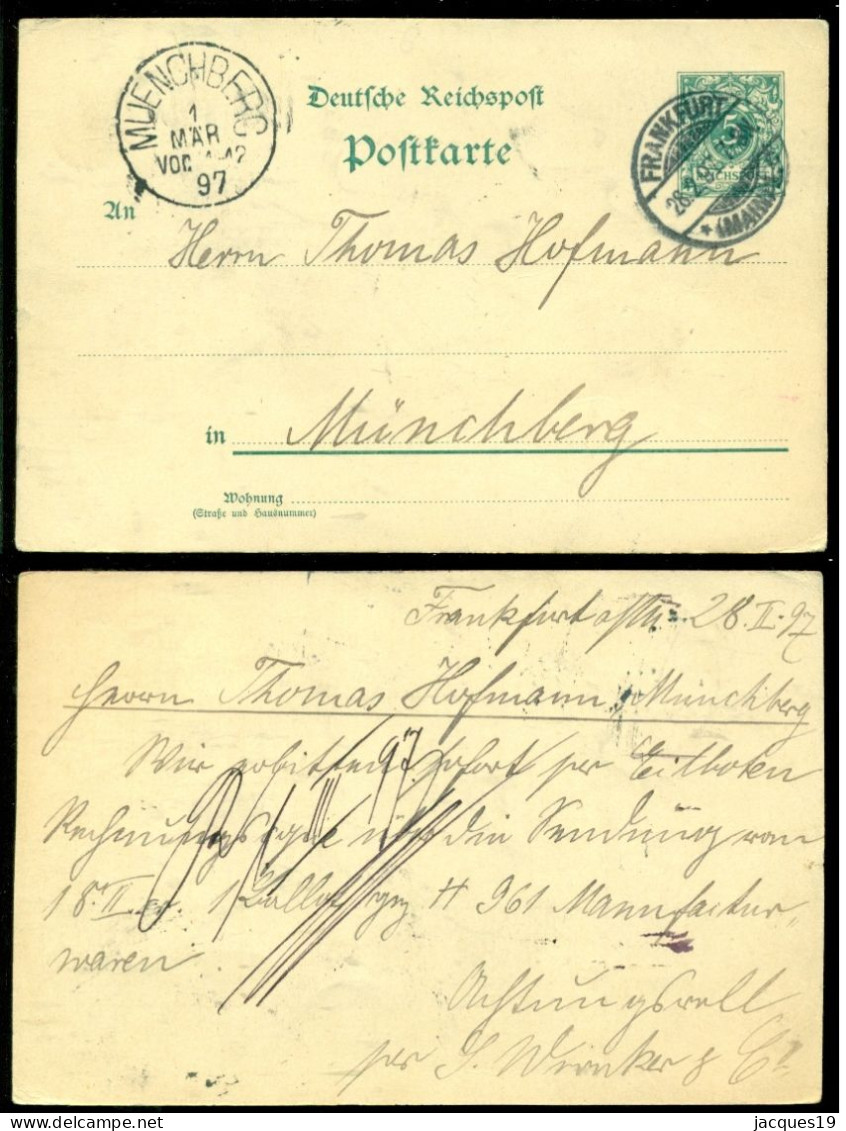 MUENCHBERG
1
MÄR
VOR 11-12
97
Deutsche Reichspost
Postkarte
FRANKFURT
28.
(MAIN)
5
REICHSPOST
An
Herrn Thomas Hofmann
in Münchberg
Wohnung
(Straße und Hausnummer)
Frankfurt a/M. 28.II.97
Herrn Thomas Hofmann, Münchberg
Wir erbitten sofort per Eilboten
Rechnungscopie über die Sendung vom
18.II. cr. 1 Ballot gez H 961 Manufactur,
waren
Achtungsvoll
per S. & Co
delcampe.net
jacques19